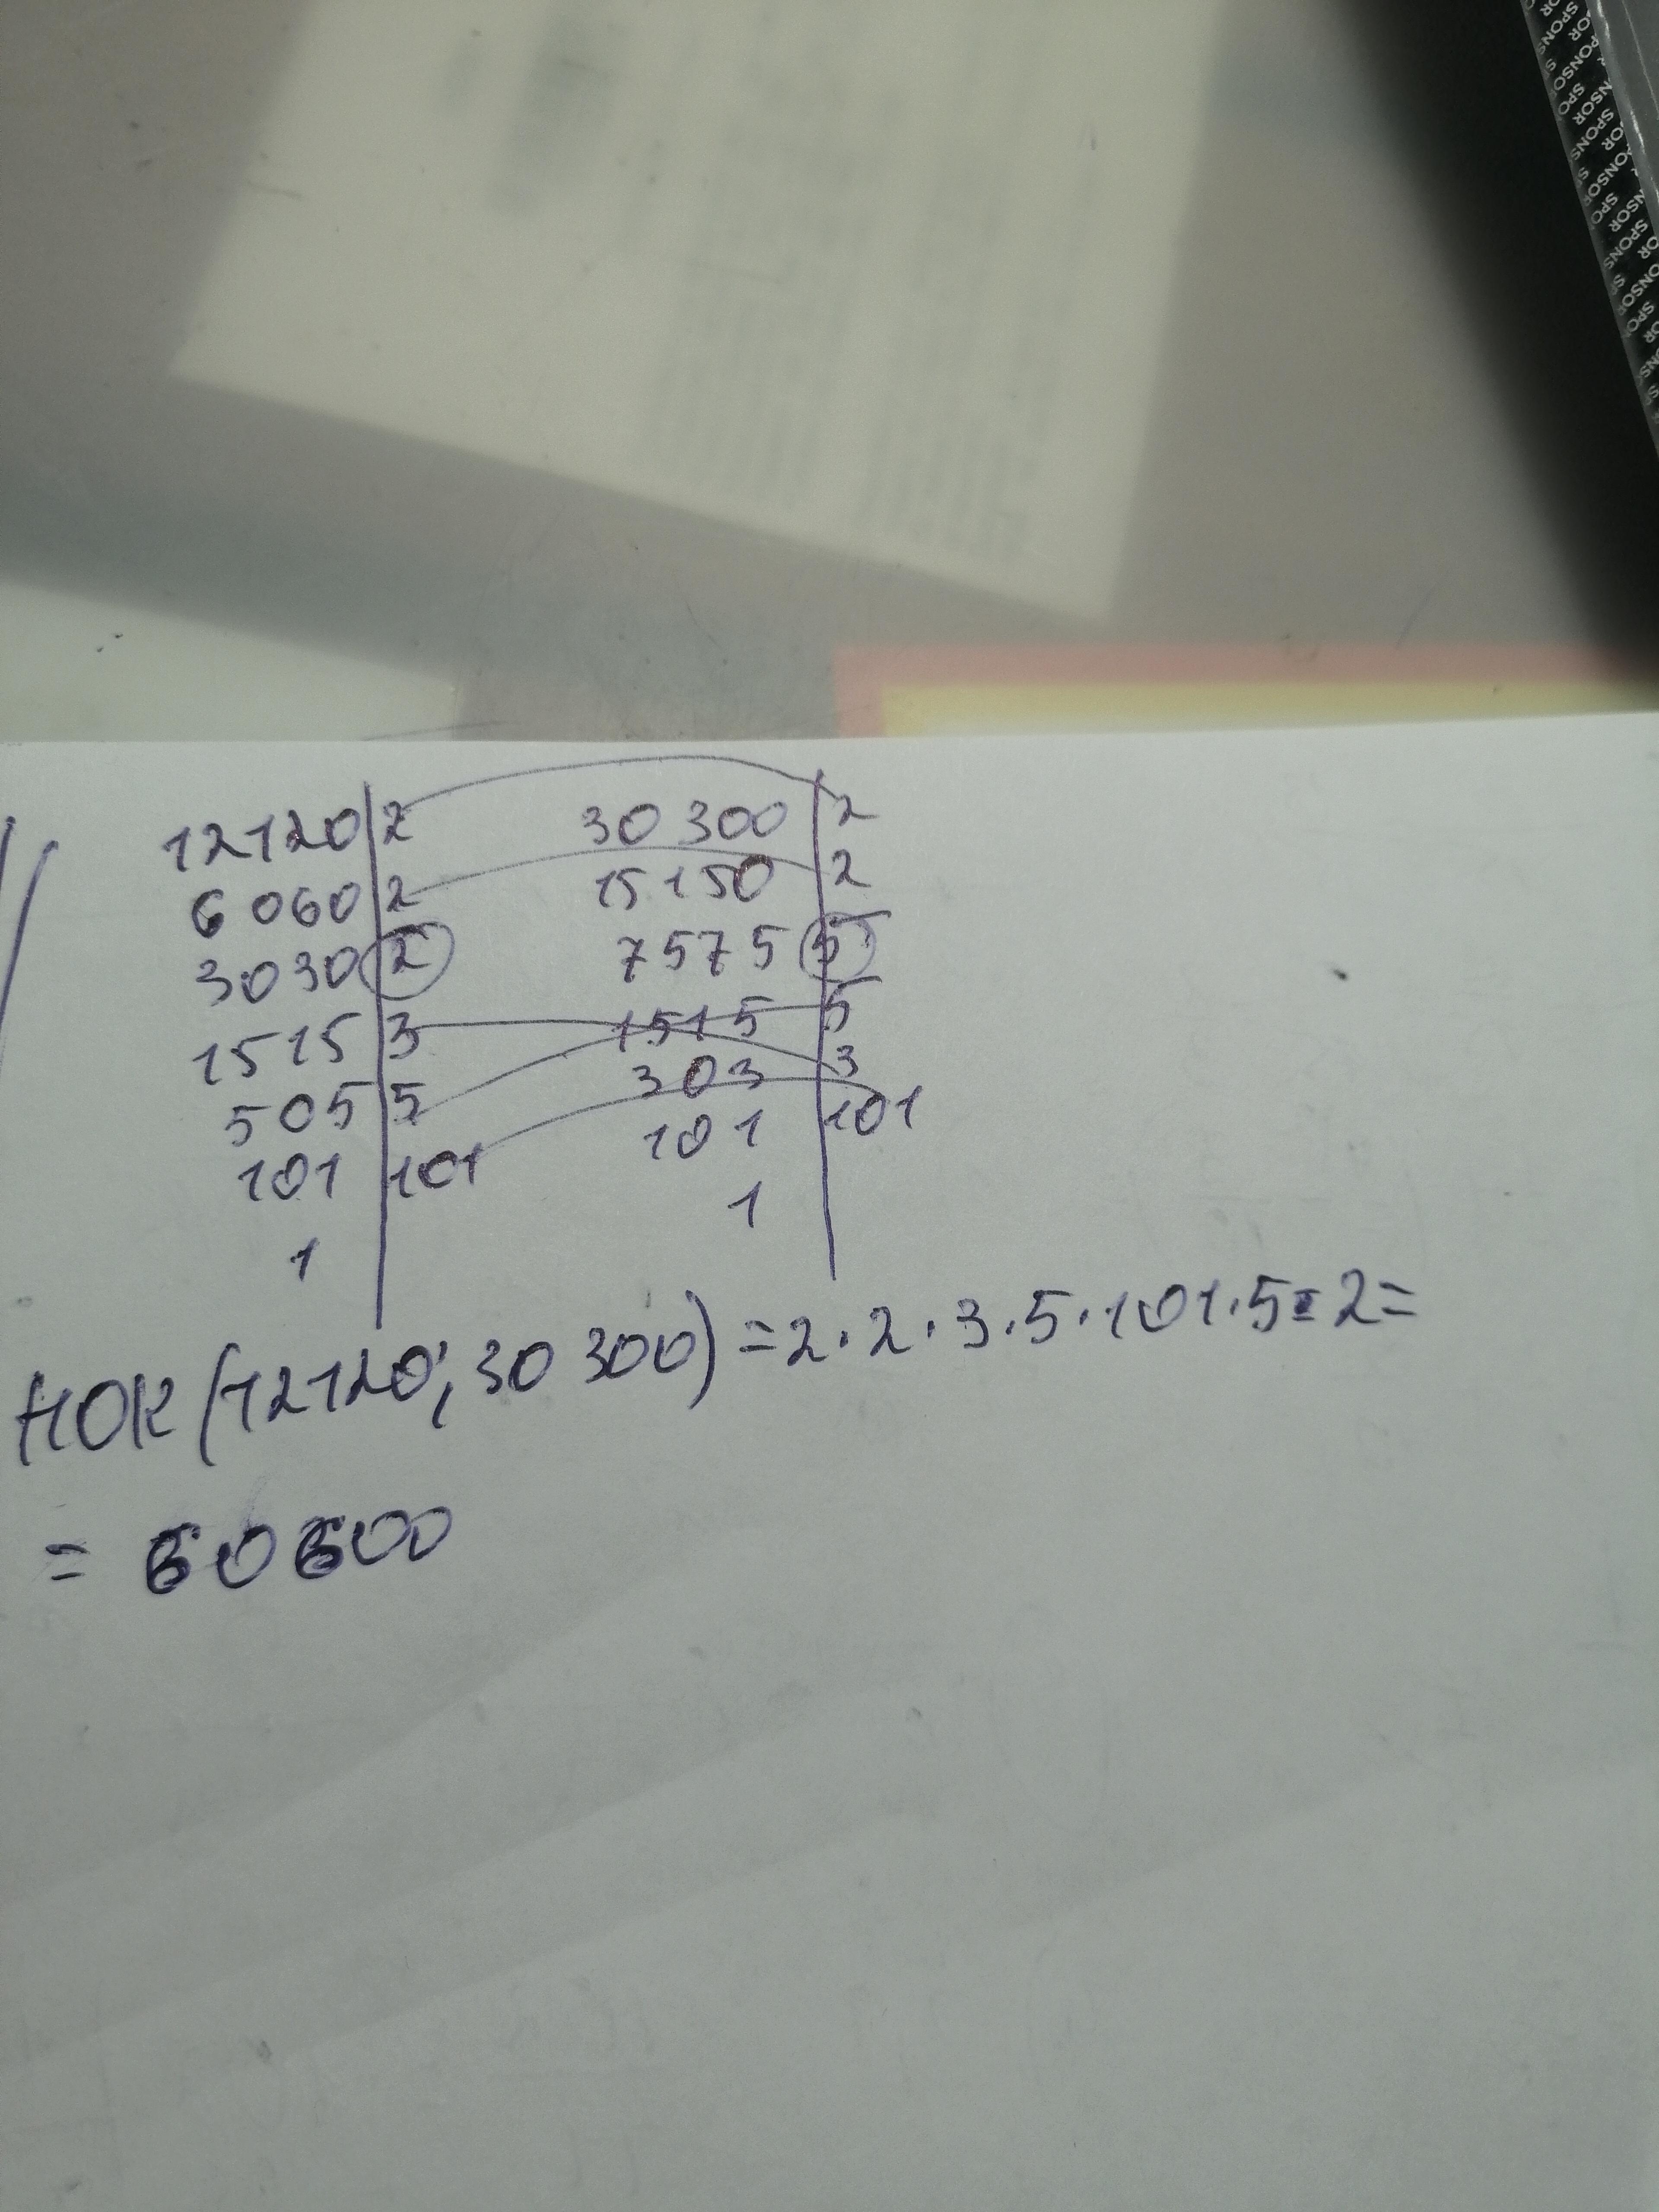 12120|2 30 300|2
6 060|2 15150|2
3030|2 7575|5
1515|3 1515|5
505|5 303|3
101|101 101|101
1 1
НОК (12120; 30 300) = 2·2·3·5·101·5·2=
= 60600
SPONSOR